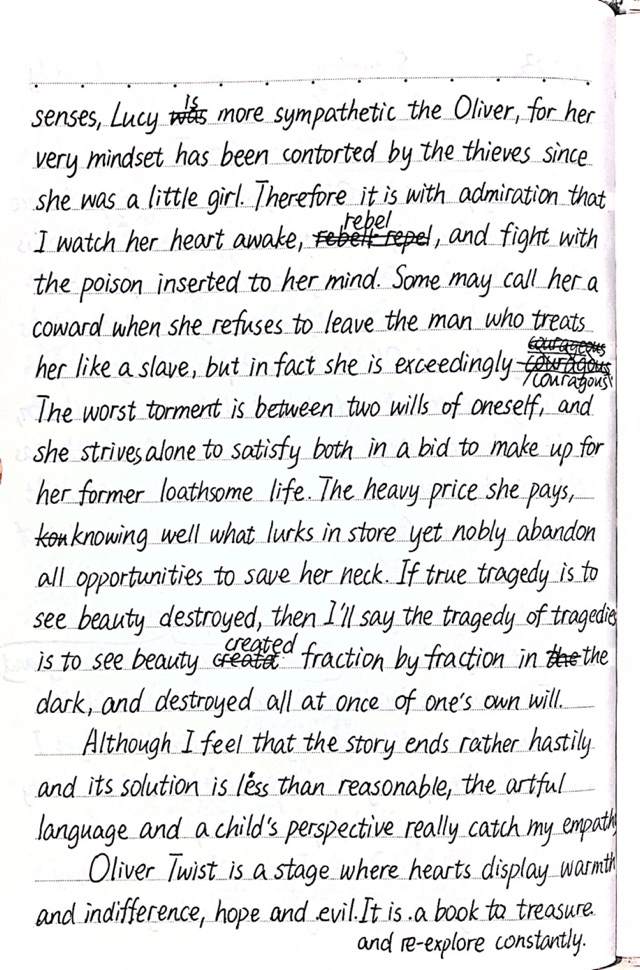 senses, Lucy is more sympathetic the Oliver, for her
very mindset has been contorted by the thieves since
she was a little girl. Therefore it is with admiration that
I watch her heart awake, rebel, and fight with
the poison inserted to her mind. Some may call her a
coward when she refuses to leave the man who treats
her like a slave, but in fact she is exceedingly couragous.
The worst torment is between two wills of oneself, and
she strives alone to satisfy both in a bid to make up for
her former loathsome life. The heavy price she pays,
knowing well what lurks in store yet nobly abandon
all opportunities to save her neck. If true tragedy is to
see beauty destroyed, then I'll say the tragedy of tragedies
is to see beauty created fraction by fraction in the
dark, and destroyed all at once of one's own will.
Although I feel that the story ends rather hastily
and its solution is less than reasonable, the artful
language and a child's perspective really catch my empathy
Oliver Twist is a stage where hearts display warmth
and indifference, hope and evil. It is a book to treasure
and re-explore constantly.